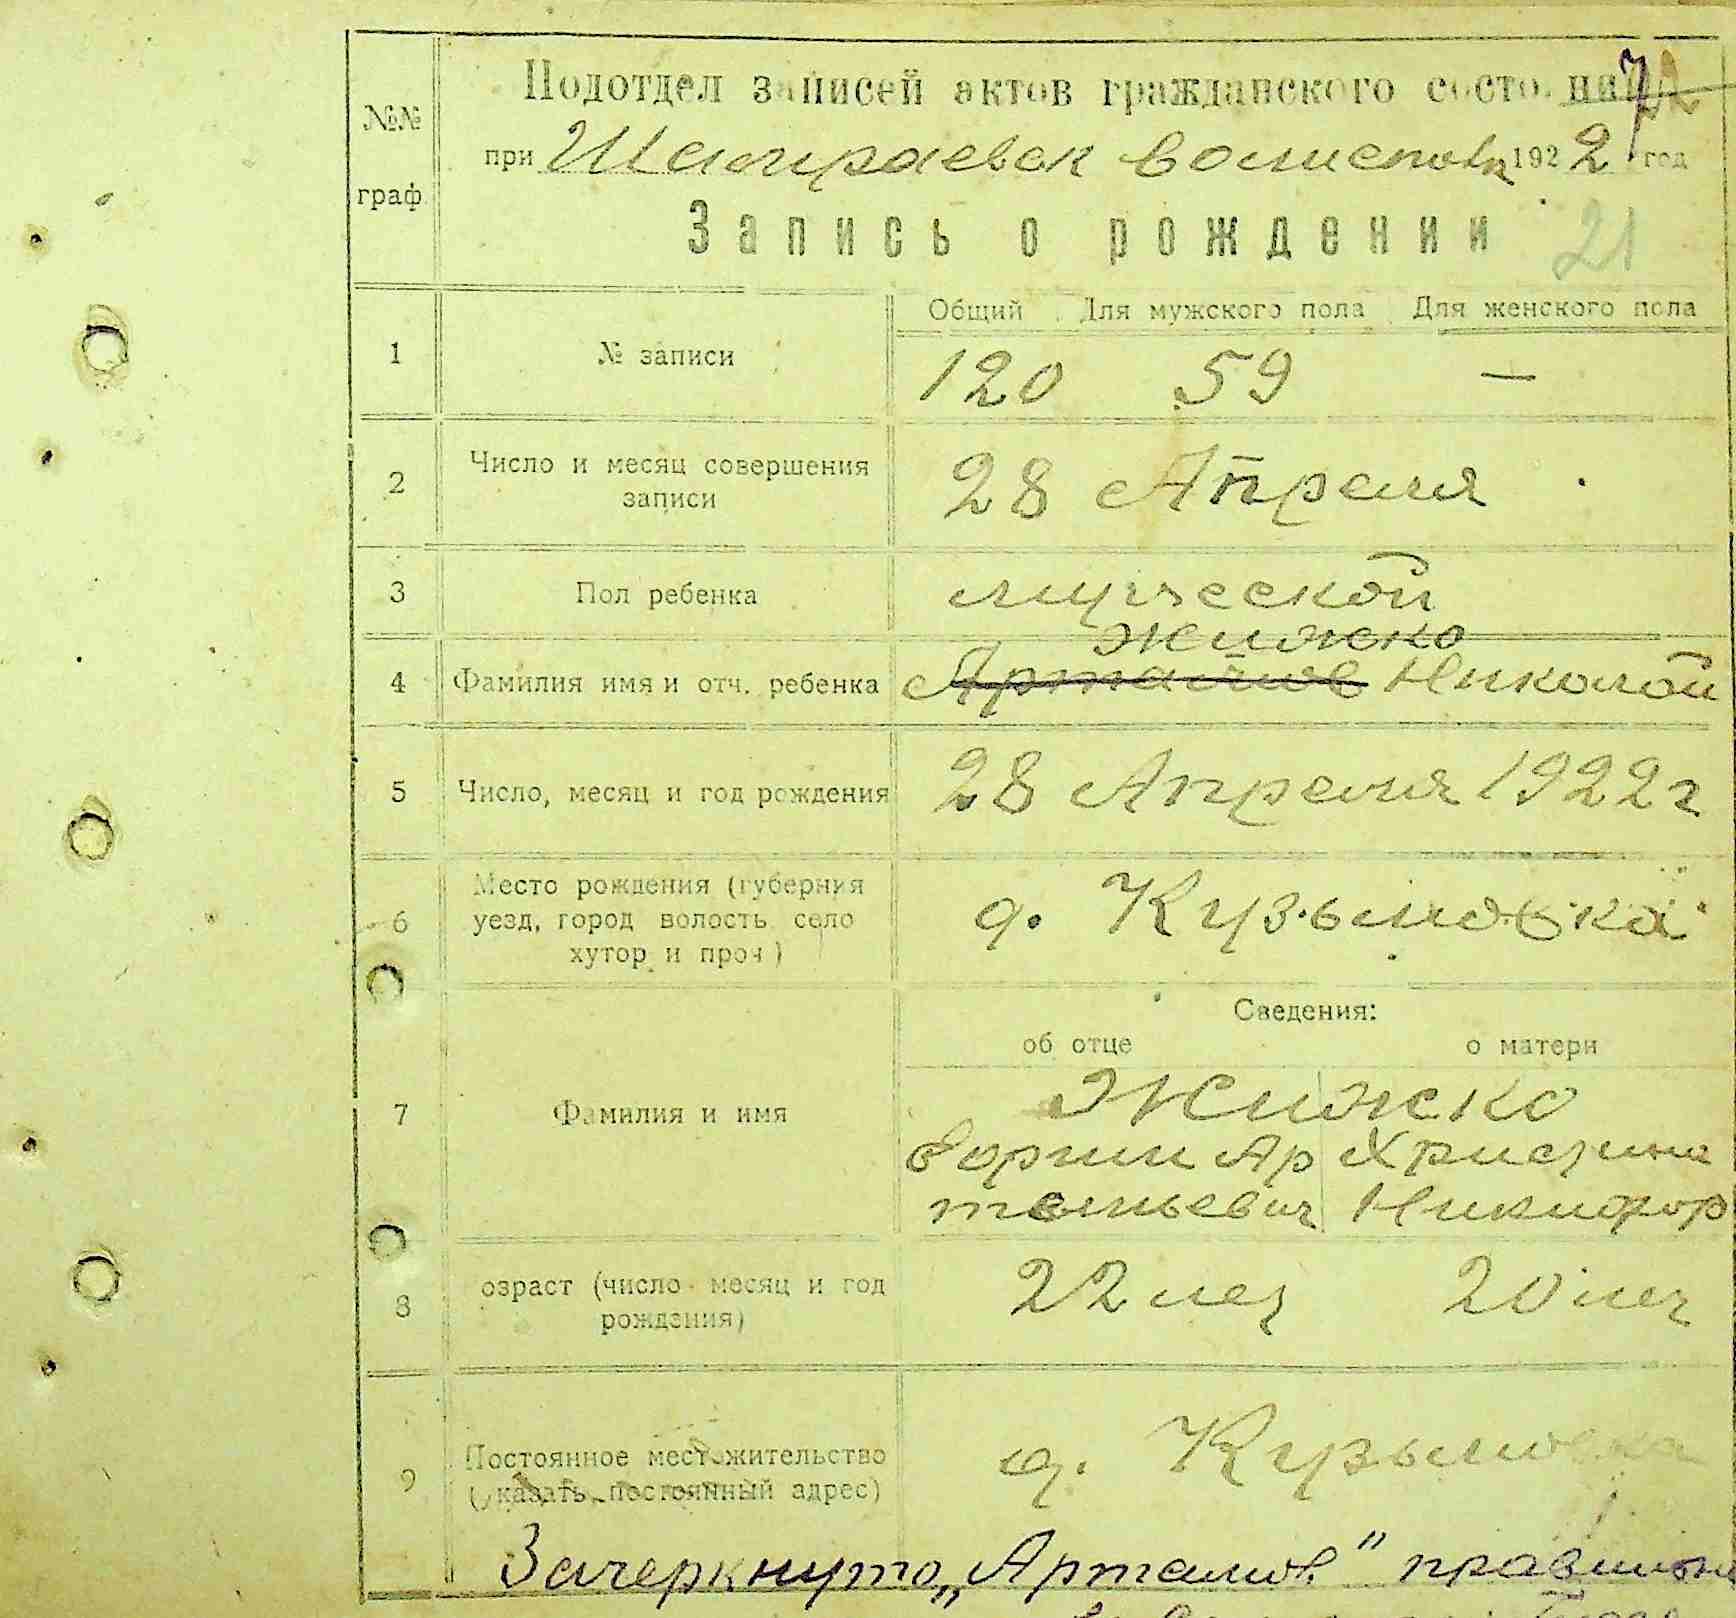 72
Подотдел записей актов гражданского состояния
№№ граф
при Шатраевск волисполк 1922 год
Запись о рождении
21
Общий Для мужского пола Для женского пола
1 № записи 120 59 —
2 Число и месяц совершения записи 28 Апреля
3 Пол ребенка мужеской
Жижко
4 Фамилия имя и отч. ребенка Артамов Николай
5 Число, месяц и год рождения 28 Апреля 1922 г
6 Место рождения (губерния
уезд, город волость село
хутор и проч)
д. Кузьмовка
Сведения:
об отце о матери
7 Фамилия и имя
Жижко
Ар Христина
Никифор
8 озраст (число месяц и год рождения) 22 лет 20 лет
9 Постоянное местожительство
(указать постоянный адрес)
д. Кузьмовка
Зачеркнуто „Артамов" правильн